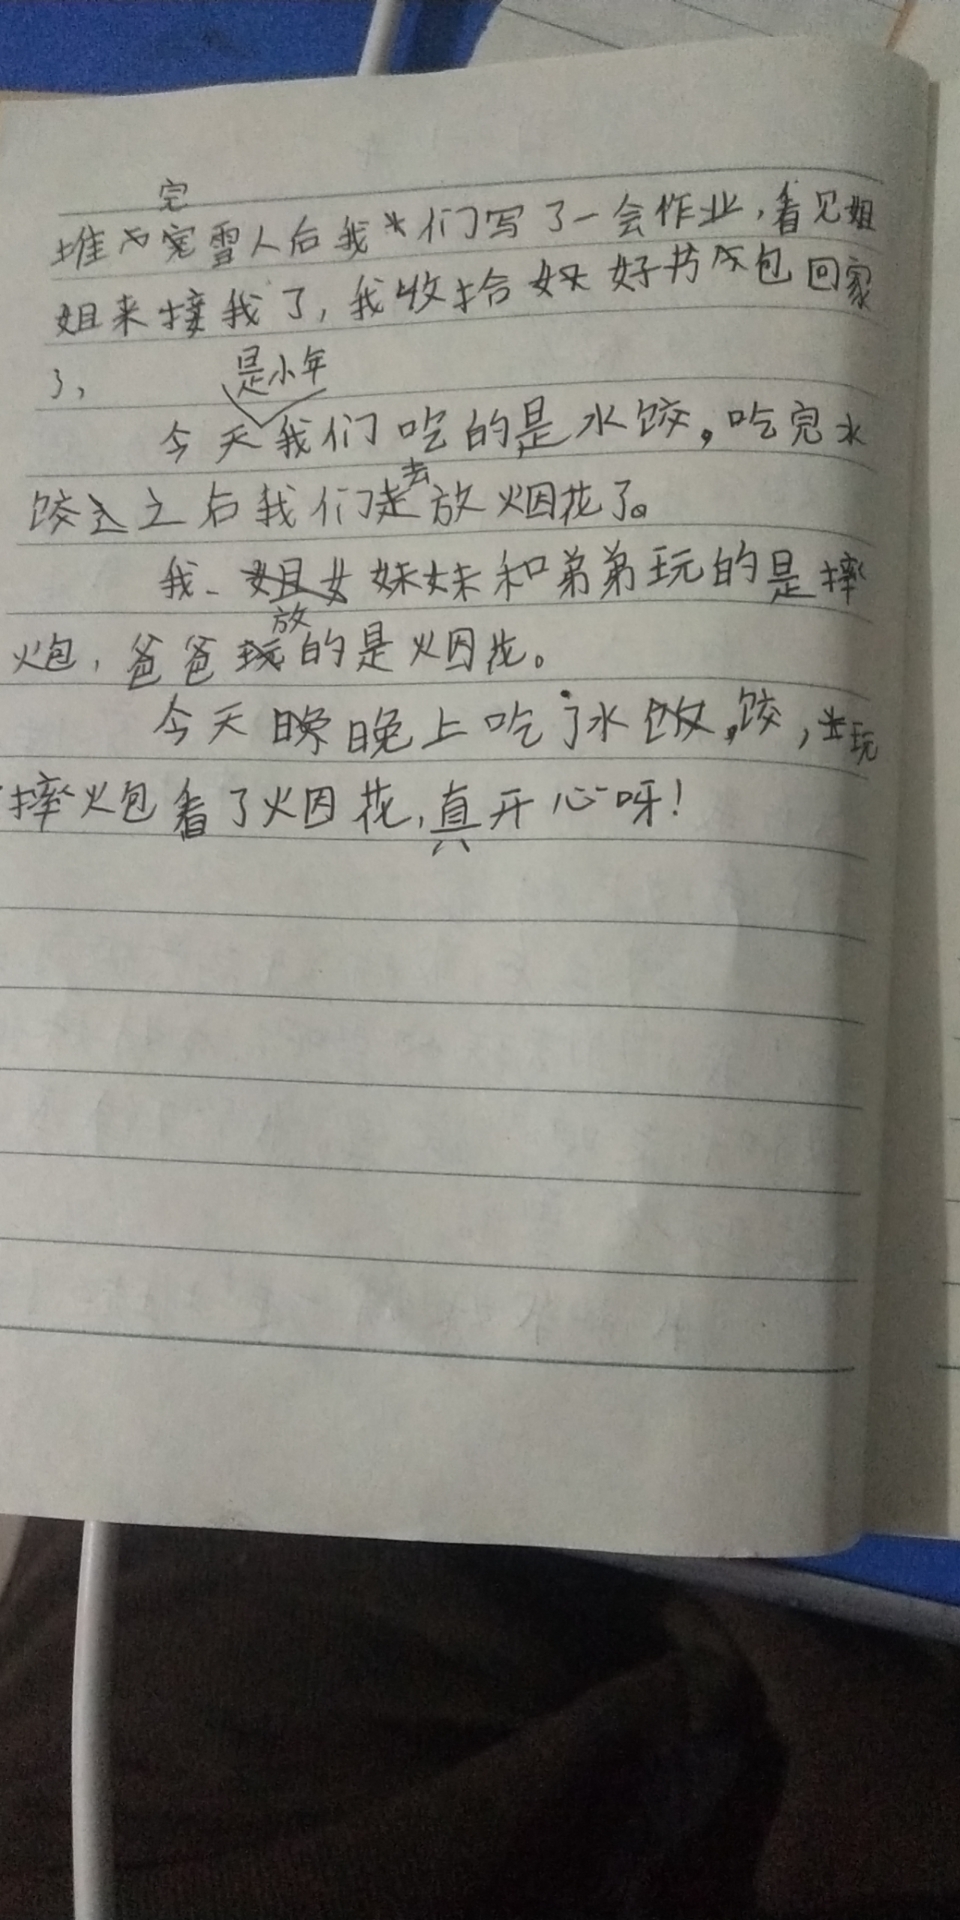 堆完雪人后我们写了一会作业,看见姐
姐来接我了,我收拾好书包回家
了,
今天是小年我们吃的是水饺。吃完水
饺之后我们去放烟花了。
我、妹妹和弟弟玩的是摔
炮,爸爸放的是烟花。
今天晚上吃了水饺,玩
摔炮看了烟花,真开心呀!